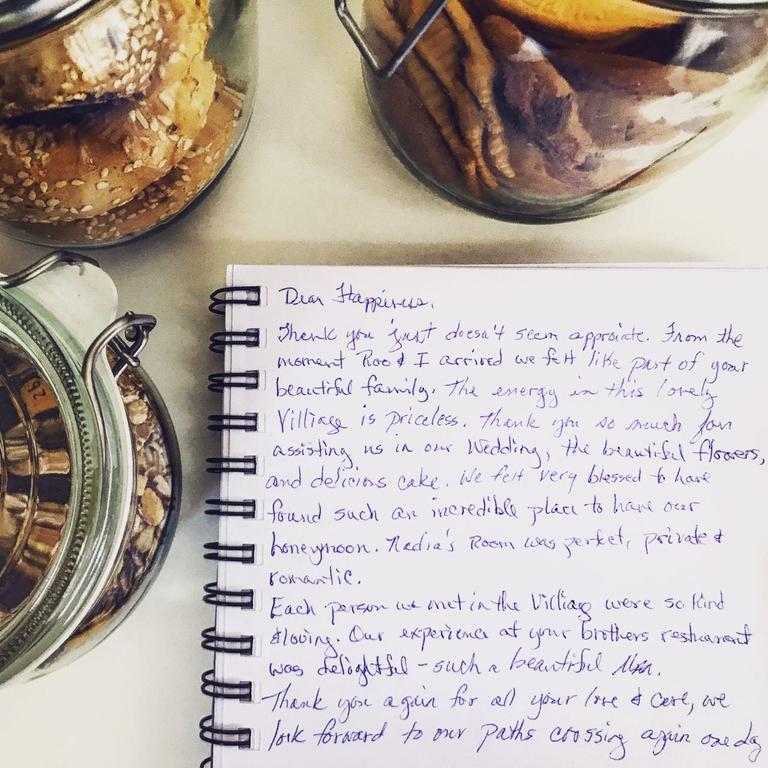 Dear Happiness,
Thank you just doesn't seem approiate. From the
moment Roo & I arrived we felt like part of your
beautiful family. The energy in this lovely
Villiage is priceless. Thank you so much for
assisting us in our Wedding, the beautiful flowers,
and delicious cake. We felt very blessed to have
found such an incredible place to have our
honeymoon. Nadia's Room was perfect, private &
romantic.
Each person we met in the Villiag were so kind
& loving. Our experience at your brothers restuarant
was delightful - such a beautiful Man.
Thank you again for all your love & care, we
look forward to our paths crossing again one day